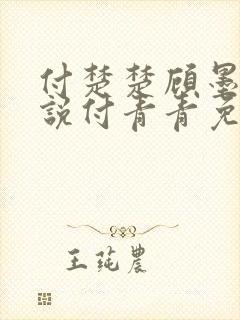 付楚楚顾墨
説付青青免
王莼農